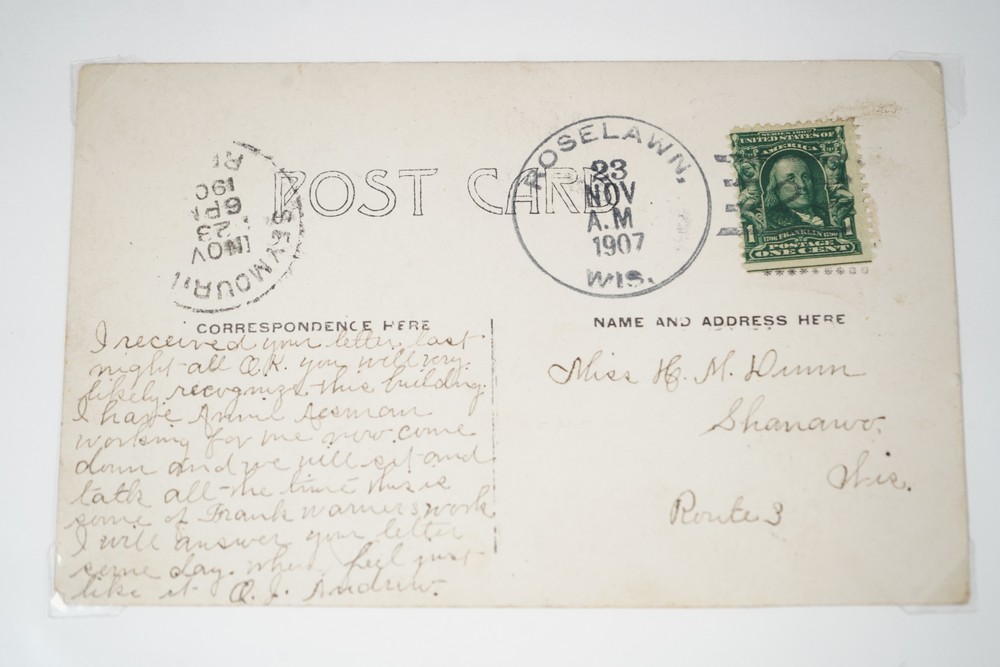 POST CARD
ROSELAWN,
23
NOV
A.M
1907
WIS.
SERIES 1902
UNITED STATES OF
AMERICA
1 1
1706 FRANKLIN 1790
POSTAGE
ONE CENT
SEYMOUR
NOV
23
6 P
190
R
CORRESPONDENCE HERE
NAME AND ADDRESS HERE
I received your letter last
night all O.K. you will very
likely recognize this building.
I have Annie
working for me now come
down and we will sit and
talk all the time this is
some of Frank Warners work
I will answer your letter
some day. when I feel just
like it O. J. Andrew.
Miss H. M. Dunn
Shanawo.
Wis.
Route 3